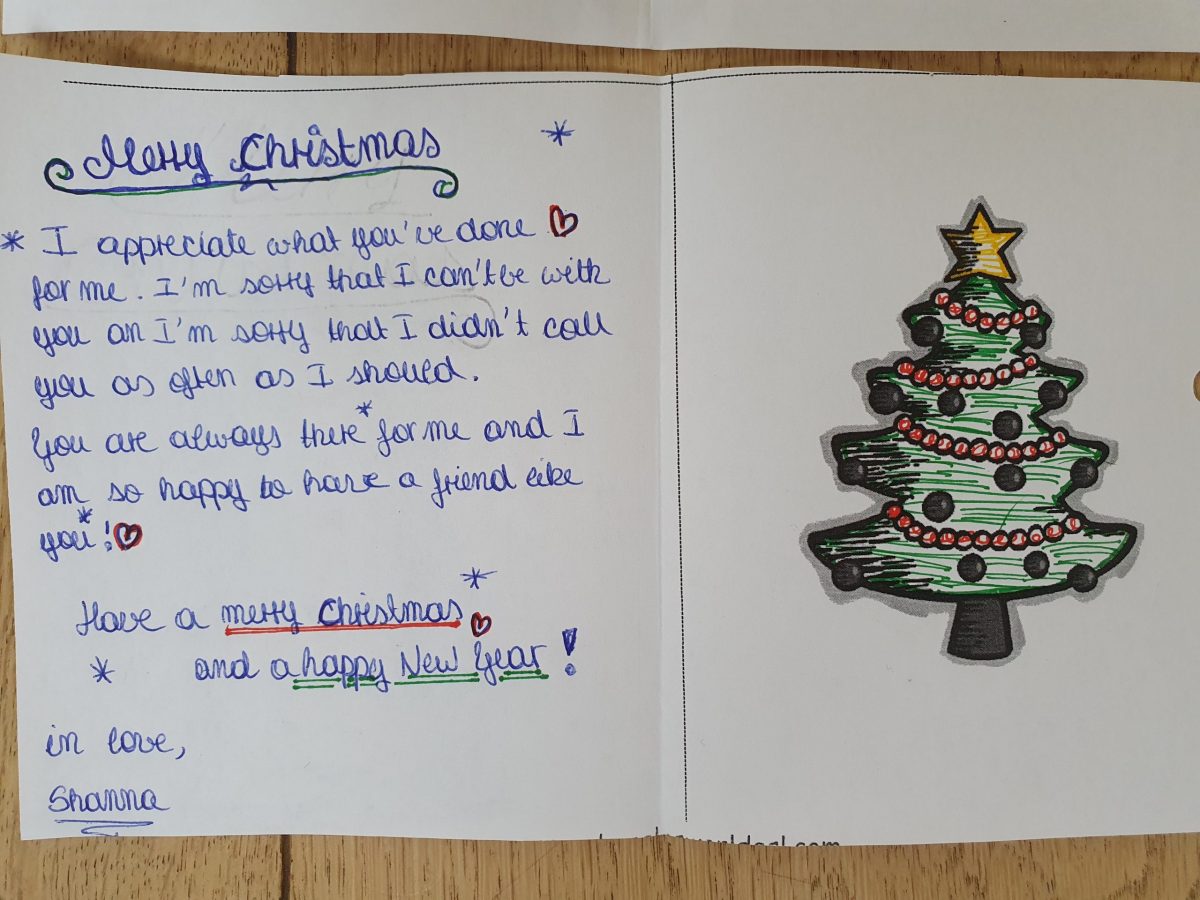 Merry Christmas
I appreciate what you've done
for me. I'm sorry that I can't be with
you an I'm sorry that I didn't call
you as often as I should.
You are always there for me and I
am so happy to have a friend like
you!
Have a merry Christmas
and a happy New Year!
in love,
Shanna